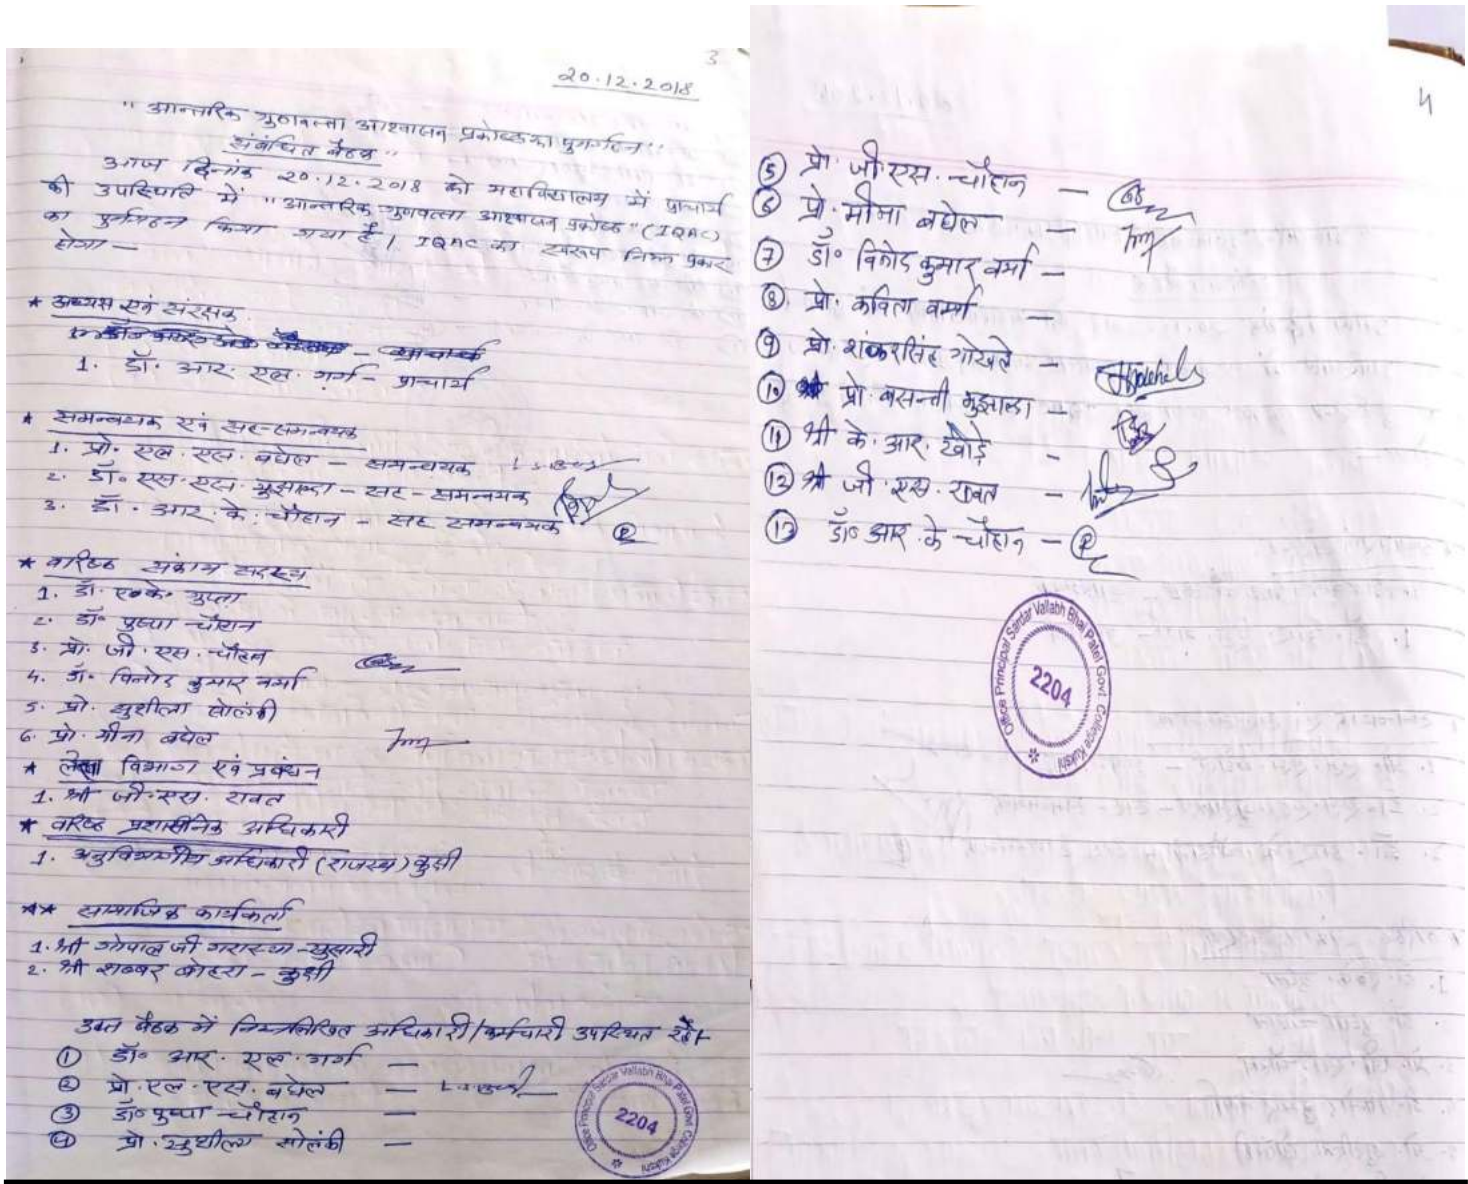 3
20.12.2018
" आन्तरिक गुणवत्ता आश्वासन प्रकोष्ठ का पुनर्गठन "
संबंधित बैठक "
आज दिनांक 20.12.2018 को महाविद्यालय में प्राचार्य
की उपस्थिति में " आन्तरिक गुणवत्ता आश्वासन प्रकोष्ठ " (IQAC)
का पुर्नगठन किया गया है । IQAC का स्वरूप निम्न प्रकार
होगा —
* अध्यक्ष एवं संरक्षक
1. डॉ. आर. एल. गर्ग - प्राचार्य
* समन्वयक एवं सह-समन्वयक
1. प्रो. एल. एस. बघेल - समन्वयक
2. डॉ. एस. एस. मुझाल्दा - सह - समन्वयक
3. डॉ. आर. के. चौहान - सह समन्वयक
* वरिष्ठ संकाय सदस्य
1. डॉ. एन.के. गुप्ता
2. डॉ. पुष्पा चौहान
3. प्रो. जी. एस. चौहान
4. डॉ. विनोद कुमार वर्मा
5. प्रो. सुशीला सोलंकी
6. प्रो. मीना बघेल
* लेखा विभाग एवं प्रबंधन
1. श्री जी. एस. रावत
* वरिष्ठ प्रशासनिक अधिकारी
1. अनुविभागीय अधिकारी (राजस्व) कुक्षी
** सामाजिक कार्यकर्ता
1. श्री गोपाल जी
2. श्री शब्बर बोहरा - कुक्षी
उक्त बैठक में निम्नलिखित अधिकारी/कर्मचारी उपस्थित रहे।
① डॉ. आर. एल. गर्ग —
② प्रो. एल. एस. बघेल —
③ डॉ. पुष्पा चौहान —
④ प्रो. सुशीला सोलंकी —
Office Principal Sardar Vallabh Bhai Patel Govt. College Kukshi
2204
4
⑤ प्रो. जी. एस. चौहान —
⑥ प्रो. मीना बघेल —
⑦ डॉ. विनोद कुमार वर्मा —
⑧ प्रो. कविता वर्मा —
⑨ प्रो. शंकरसिंह गोखले —
⑩ प्रो. बसन्ती मुझाल्दा —
⑪ श्री के. आर. खोड़े —
⑫ श्री जी. एस. रावत —
⑬ डॉ. आर. के चौहान —
Office Principal Sardar Vallabh Bhai Patel Govt. College Kukshi
2204